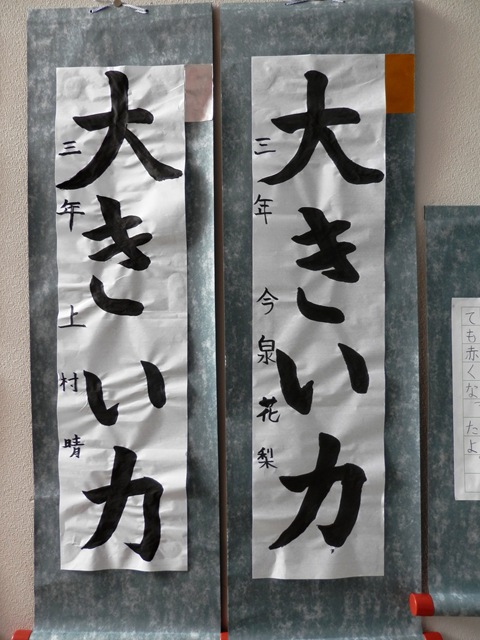 大きい力
三年今泉花梨
大きい力
三年上村晴
ても赤くなったよ。